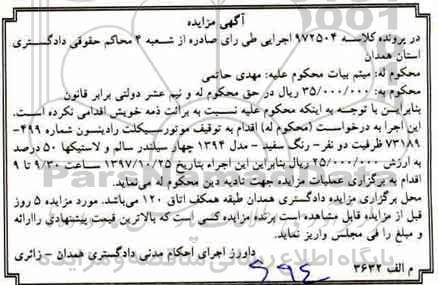 آگهی مزایده
در پرونده کلاسه ۹۷۲۵۰۴ اجرایی طی رای صادره از شعبه ۴ محاکم حقوقی دادگستری
استان همدان
محکوم له: میثم بیات محکوم علیه: مهدی حاتمی
محکوم به: ۳۵/۰۰۰/۰۰۰ ریال در حق محکوم له و نیم عشر دولتی برابر قانون
بنابراین با توجه به اینکه محکوم علیه نسبت به برائت ذمه خویش اقدامی نکرده است.
این اجرا به درخواست (محکوم له) اقدام به توقیف موتورسیکلت رادیسون شماره ۴۹۹-
۷۳۱۸۹ ظرفیت دو نفر- رنگ سفید - مدل ۱۳۹۴ چهار سیلندر سالم و لاستیکها ۵۰ درصد
به ارزش ۲۵/۰۰۰/۰۰۰ ریال بنابراین این اجراء بتاریخ ۱۳۹۷/۱۰/۲۵ ساعت ۹/۳۰ تا ۹
اقدام به برگزاری عملیات مزایده جهت تادیه دین محکوم له می‌نماید.
محل برگزاری مزایده دادگستری همدان طبقه همکف اتاق ۱۲۰ می‌باشد. مورد مزایده ۵ روز
قبل از مزایده قابل مشاهده است برنده مزایده کسی است که بالاترین قیمت پیشنهادی راارائه
و مبلغ را فی مجلس واریز نماید.
دادورز اجرای احکام مدنی دادگستری همدان - زائری
م الف ۳۶۳۲
۶۹۴
ParsNamadData
پایگاه اطلاع رسانی مناقصه و مزایده